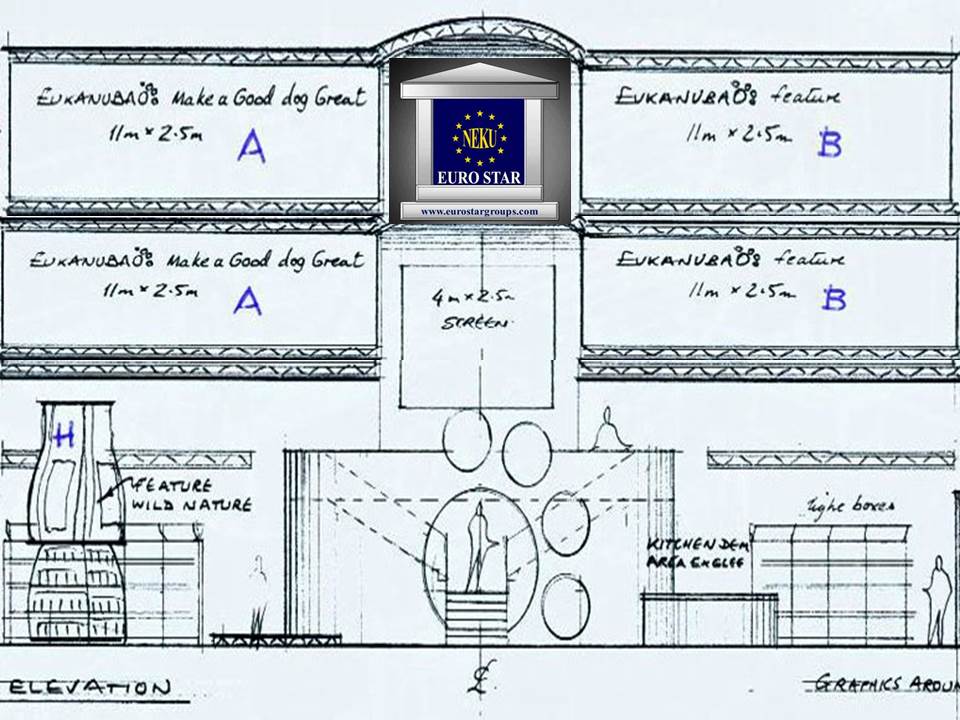 EUKANUBA Make a Good dog Great
11m × 2.5m
A
NEKU
EURO STAR
www.eurostargroups.com
EUKANUBA feature
11m × 2.5m
B
EUKANUBA Make a Good dog Great
11m × 2.5m
A
4m × 2.5m
SCREEN
EUKANUBA feature
11m × 2.5m
B
H
FEATURE
WILD NATURE
light boxes
KITCHEN DEM
AREA
ELEVATION
GRAPHICS AROUN